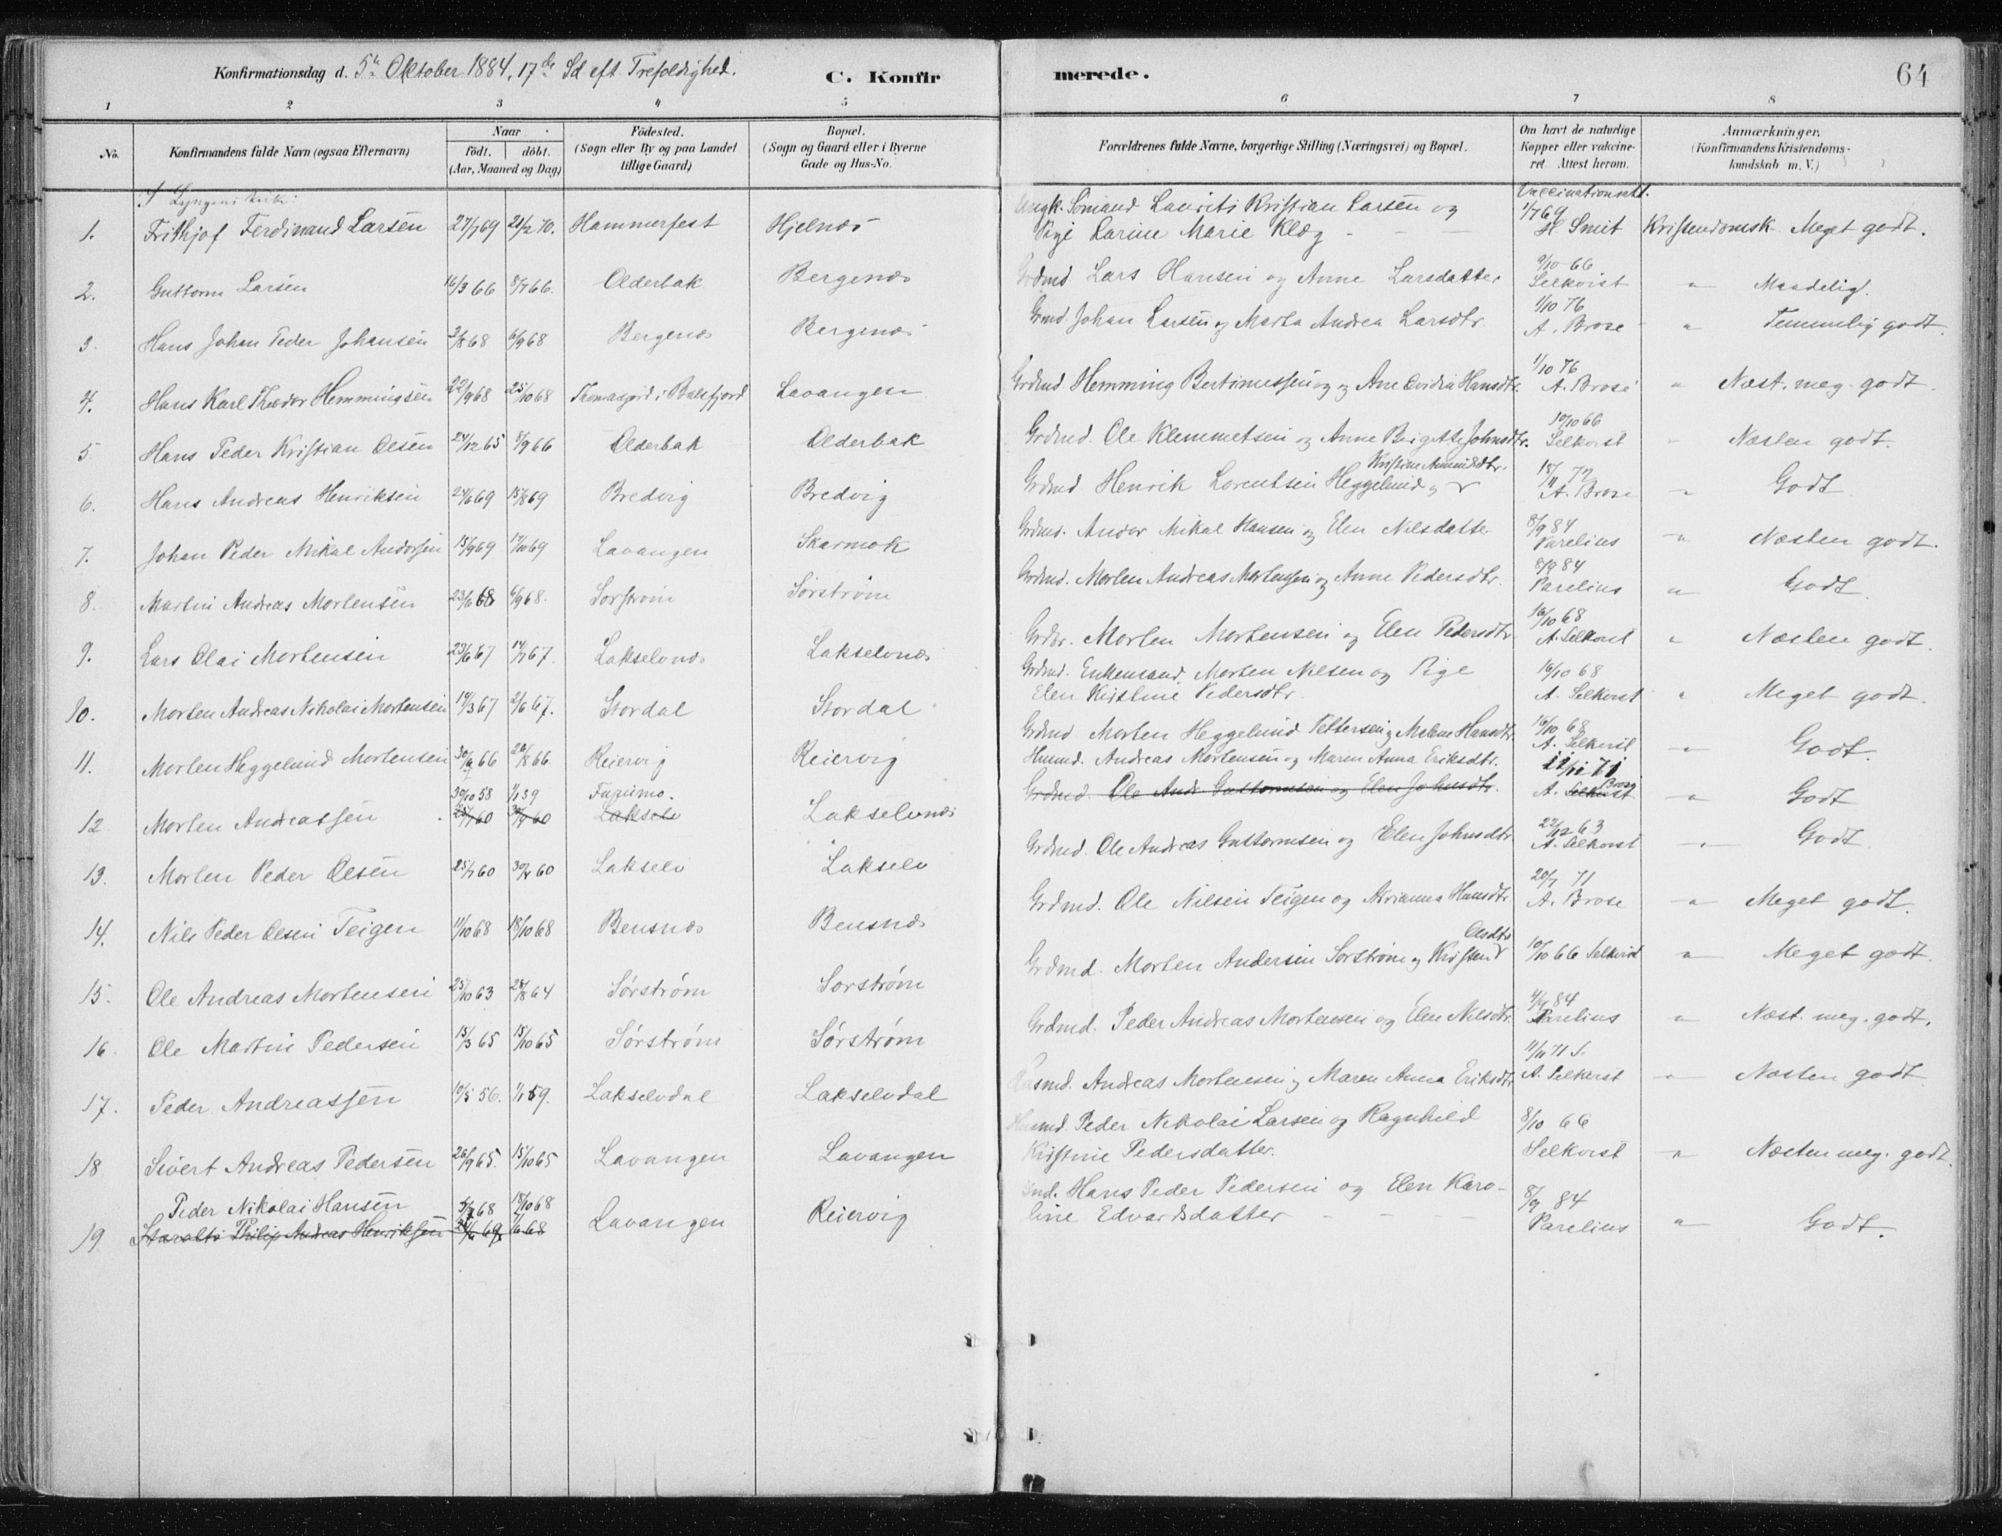 Konfirmationsdag d. 5te Oktober 1884, 17de Sd eft. Trefoldighed. C. Konfirmerede. 64
1 2 3 4 5 6 7 8
No. Konfirmandens fulde Navn (ogsaa Efternavn) Naar født. døbt. (Aar, Maaned og Dag) Fødested. (Sogn eller By og paa Landet tillige Gaard) Bopæl. (Sogn og Gaard eller i Byerne Gade og Hus-No. Forældrenes fulde Navne, borgerlige Stilling (Næringsvei) og Bopæl. Om havt de naturlige Kopper eller vakcineret. Attest herom. Anmærkninger. (Konfirmandens Kristendomskundskab m. V.)
I Lyngens Kirke:
1. Frithjof Ferdinand Larsen 27/1 69 21/2 70. Hammerfest Hjelnæs Ungk. Sømand Laurits Kristian Larsen og Pige Larine Marie Klæg - - - Vaccinationsatt. 1/7 69 H Smit Kristendomsk. Meget godt.
2. Guttorm Larsen 16/3 66 8/7 66. Olderbak Bergenæs Grdmd. Lars Hansen og Anne Larsdatter 9/10 66 Selkvist " Maadelig.
3. Hans Johan Peder Johansen 2/8 68 6/9 68 Bergenæs Bergenæs Grmd. Johan Larsen og Marta Andrea Larsdtr. 1/10 76 A. Brose " Temmelig godt.
4. Hans Karl Theodor Hemmingsen 22/9 68 25/10 68 Thomasjord i Balsfjord Lavangen Grdmd. Hemming Bertinussen og Ane Ovidia Hansdtr. 1/10 76 A. Brose " Næst. meg. godt.
5. Hans Peder Kristian Olsen 24/12 65 8/9 66 Olderbak Olderbak Grdmd. Ole Klemmetsen og Anne Birgitte Johnsdtr. 10/10 66 Selkvist " Næsten godt.
6. Hans Andreas Henriksen 24/6 69 15/8 69 Bredvig Bredvig Grdmd Henrik Lorentsen Heggelund og Kristine Amundsdtr. 18/11 72 A. Brose " Godt
7. Johan Peder Mikal Andorsen 15/9 69 17/10 69 Lavangen Skarmok Grdmd. Andor Mikal Hansen og Elen Nilsdatter 8/9 84 Parelius " Næsten godt.
8. Martin Andreas Mortensen 23/6 68 6/9 68. Sørstrøm Sørstrøm Grdmd. Morten Andreas Mortensen og Anne Pedersdtr. 8/9 84 Parelius " Godt.
9. Lars Olai Mortensen 23/6 67 14/7 67. Lakselvnæs Lakselvnæs Grdbr. Morten Mortensen og Elen Pedersdtr 16/10 68 A. Selkvist " Næsten godt.
10. Morten Andreas Nikolai Mortensen 19/3 67 2/6 67. Stordal Stordal Grdmd. Enkemand Morten Nilsen og Pige Elen Kirstine Pedersdtr. 16/10 68 A. Selkvist " Meget godt.
11. Morten Heggelund Mortensen 30/6 66 20/8 66. Reiervig Reiervig Grdmd Morten Heggelund Pettersen og Malene Hansdtr. 16/10 68 A. Selkvist " Godt.
12. Morten Andreassen 30/10 58 1/1 59 25/1 60 30/4 60 Furumo. Lakselv Lakselvnæs Husmd. Andreas Mortensen og Maren Anna Eriksdtr. Grdmd. Ole Andr. Guttormsen og Elen Johnsdtr. 11/11 71 A. Selkvist Brose " Godt
13. Morten Peder Olsen 25/1 60 30/4 60 Lakselv Lakselv Grdmd. Ole Andreas Guttormsen og Elen Johnsdtr 22/12 63 A. Selkvist " Godt.
14. Nils Peder Olsen Teigen 11/10 68 18/10 68 Bensnæs Bensnæs Grdmd. Ole Nilsen Teigen og Marianna Hansdtr. 20/7 71 A. Brose " Meget godt.
15. Ole Andreas Mortensen 25/10 63 28/8 64 Sørstrøm Sørstrøm Grdmd. Morten Andersen Sørstrøm og Kristen Olsdtr 10/10 66 Selkvist " Meget godt.
16. Ole Martin Pedersen 15/3 65 15/10 65 Sørstrøm Sørstrøm Grdmd. Peder Andreas Mortensen og Elen Nilsdtr. 4/9 84 Parelius " Næst. meg. godt.
17. Peder Andreassen 10/5 56. 1/1 59. Lakselvdal Lakselvdal Husmd. Andreas Mortensen og Maren Anna Eriksdtr. 11/11 71 S. A. Selkvist " Næsten godt.
18 Sivert Andreas Pedersen 26/9 65. 15/10 65 Lavangen Lavangen Husmd. Peder Nikolai Larsen og Ragnhild Kristine Pedersdatter. 8/10 66 Selkvist " Næsten meg. godt.
19. Peder Nikolai Hansen 5/7 68 18/10 68 Philip Andreas Henriksen Lavangen Reiervig Hans Peder Pedersen og Elen Karoline Edvardsdatter - - - 8/9 84 Parelius " Godt.